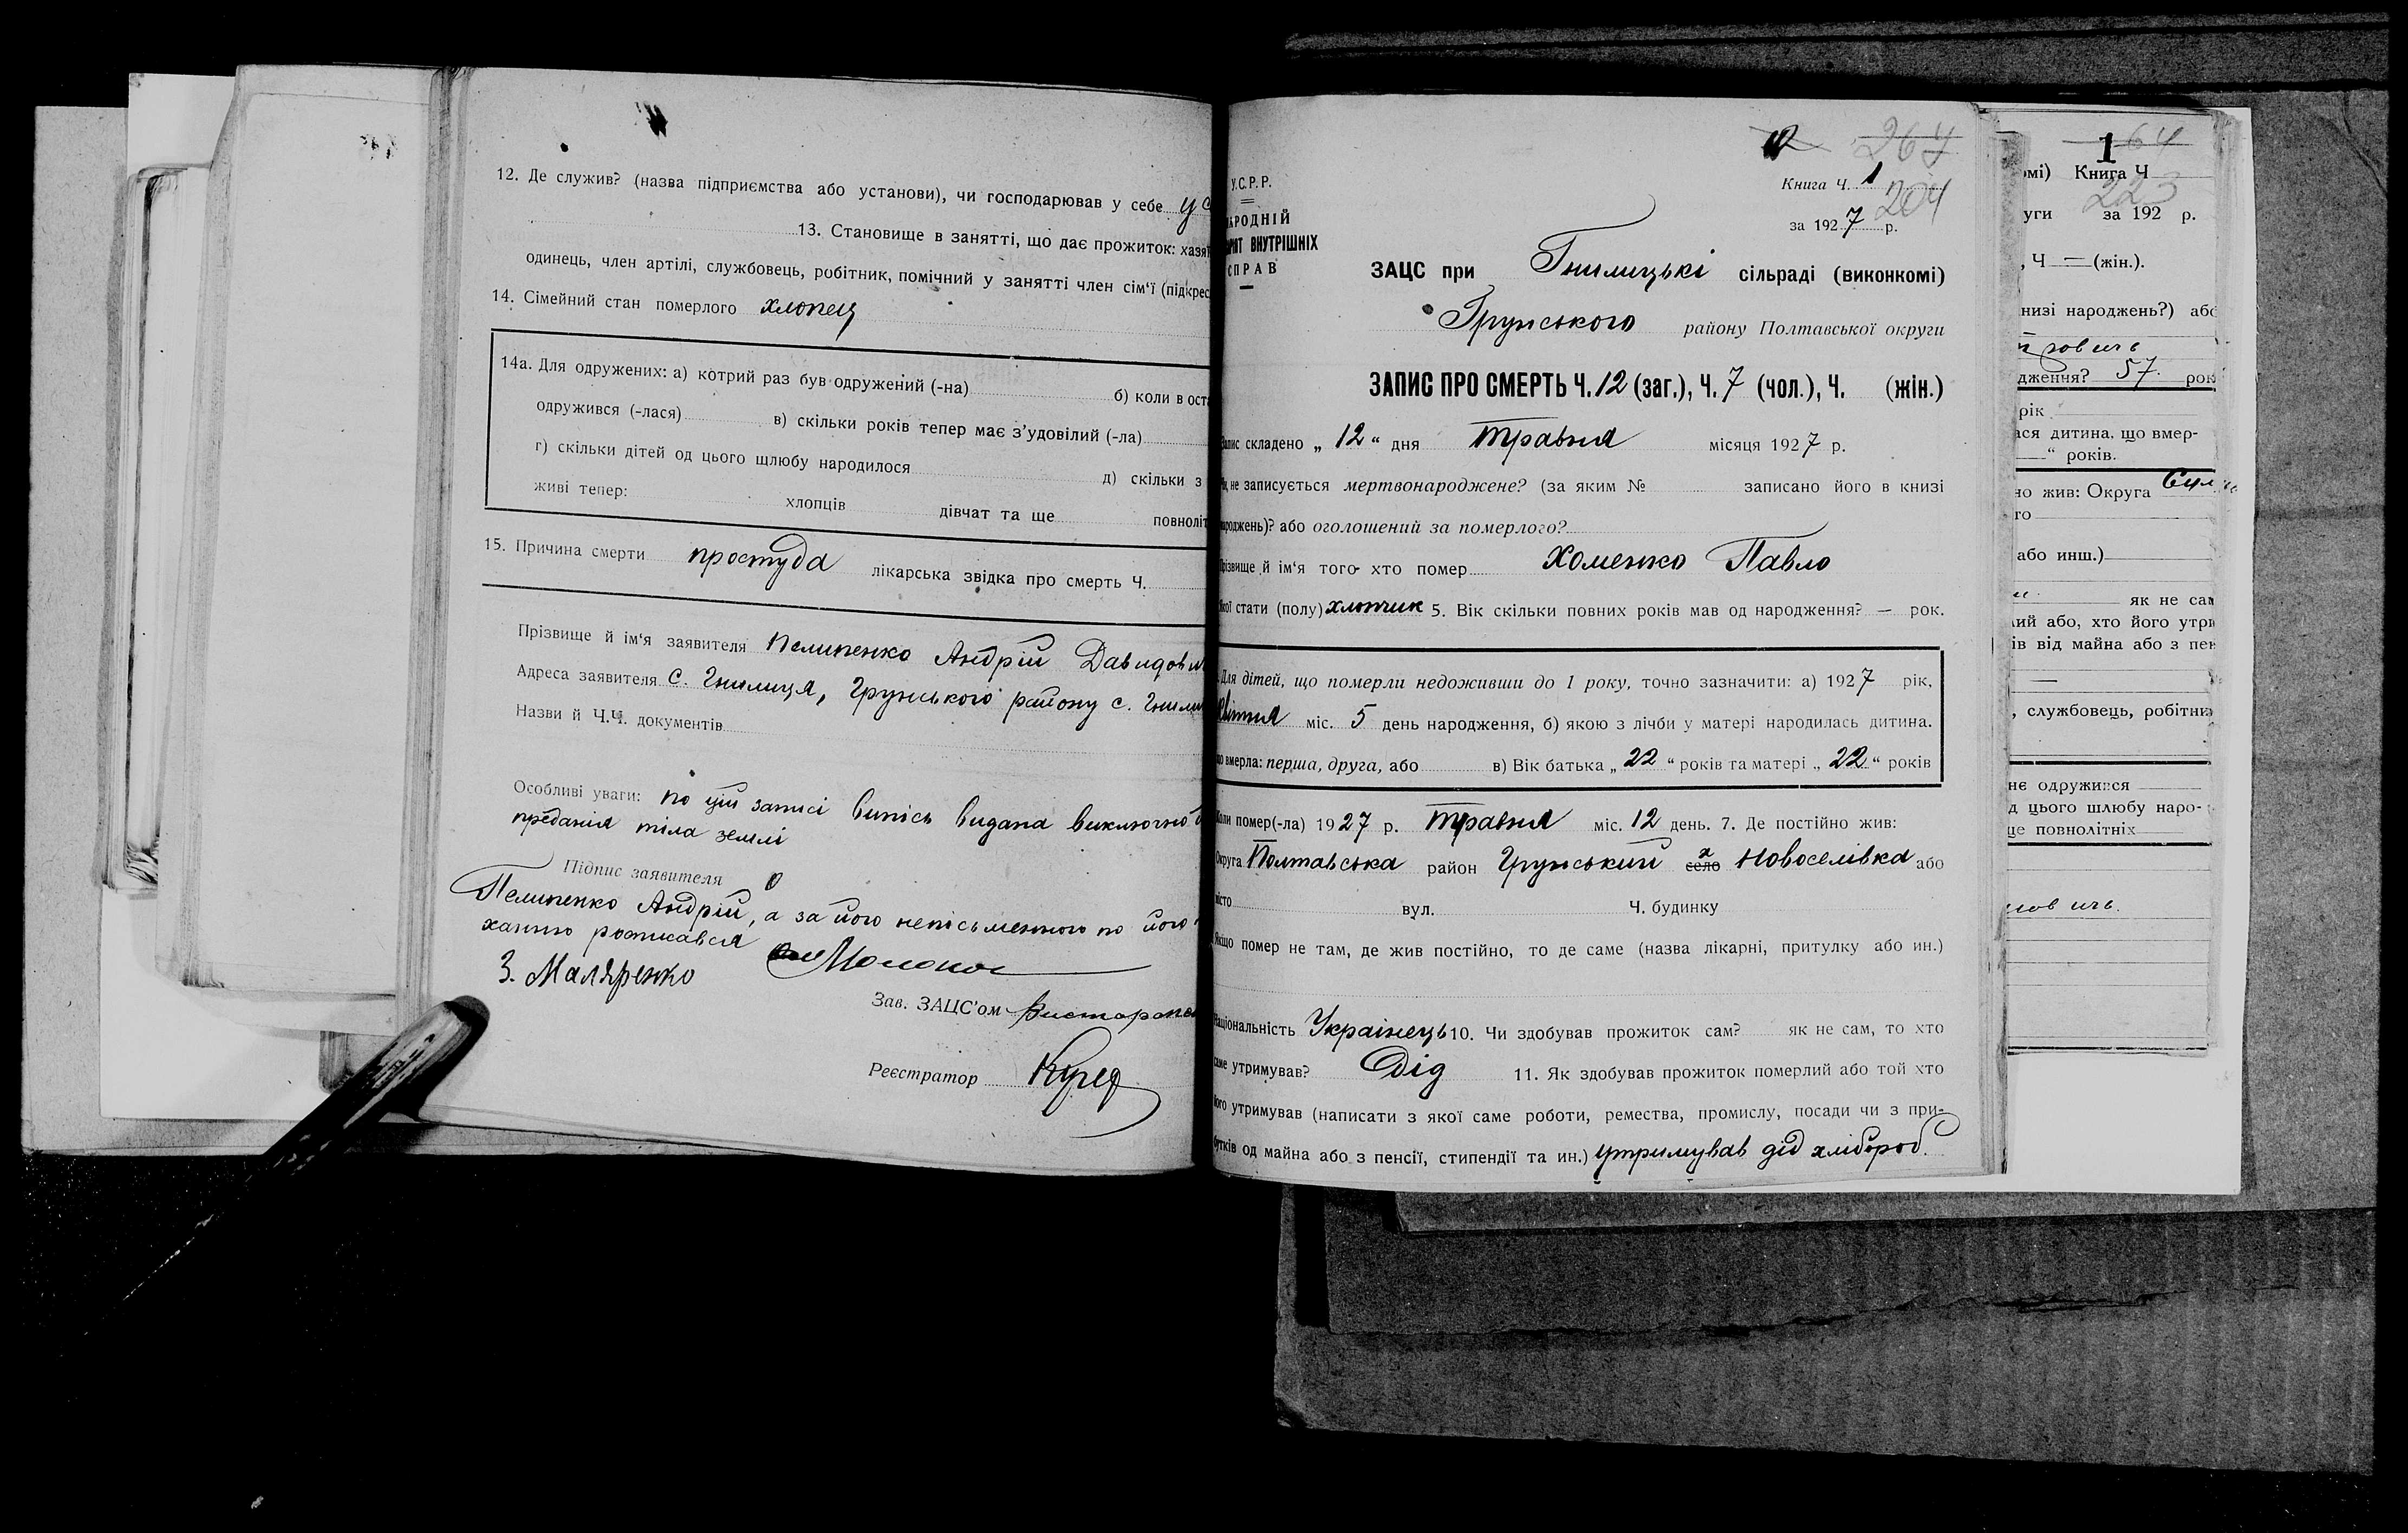 12. Де служив? (назва підприємства або установи), чи господарював у себе у с
13. Становище в занятті, що дає прожиток: хазяї
одинець, член артілі, службовець, робітник, помічний у занятті член сім'ї (підкрес
14. Сімейний стан померлого хлопец
14а. Для одружених: а) котрий раз був одружений (-на) б) коли в оста
одружився (-лася) в) скільки років тепер має з'удовілий (-ла)
г) скільки дітей од цього шлюбу народилося д) скільки з
живі тепер: хлопців дівчат та ще повноліт
15. Причина смерти простуда лікарська звідка про смерть Ч.
Прізвище й ім'я заявителя Пелипенко Андрій Давидови
Адреса заявителя с. Гнилиця, Грунського району с. Гнили
Назви й Ч.Ч. документів
Особливі уваги: По цій записі випись видана виключно д
предания тіла землі
Підпис заявителя
Пелипенко Андрій, а за його неписьменного по його
ханню росписався
З. Маляренко
Зав. ЗАЦС'ом
Реєстратор
264
Книга Ч. 1
204
за 1927 р.
У.С.Р.Р.
АРОДНІЙ
АРІЯТ ВНУТРІШНІХ
СПРАВ
ЗАЦС при Гнилицькі сільраді (виконкомі)
Грунського району Полтавської округи
ЗАПИС ПРО СМЕРТЬ Ч. 12 (заг.), Ч. 7 (чол.), Ч. (жін.)
Запис складено „ 12 “ дня травня місяця 1927 р.
Чи не записується мертвонароджене? (за яким № записано його в книзі
народжень)? або оголошений за померлого?
Прізвище й ім'я того хто помер Хоменко Павло
Якої стати (полу) хлопчик 5. Вік скільки повних років мав од народження? — рок.
Для дітей, що померли недоживши до 1 року, точно зазначити: а) 1927 рік,
квітня міс. 5 день народження, б) якою з лічби у матері народилась дитина.
що вмерла: перша, друга, або в) Вік батька „ 22 “ років та матері „ 22 “ років
Коли помер(-ла) 1927 р. травня міс. 12 день. 7. Де постійно жив:
Округа Полтавська район Грунський село х Новоселівка або
місто вул. Ч. будинку
Якщо помер не там, де жив постійно, то де саме (назва лікарні, притулку або ин.)
Національність Українець 10. Чи здобував прожиток сам? як не сам, то хто
саме утримував? Дід 11. Як здобував прожиток померлий або той хто
його утримував (написати з якої саме роботи, ремества, промислу, посади чи з при-
бутків од майна або з пенсії, стипендії та ин.) утримував дід хлібороб.
1 64
омі) Книга Ч
223
уги за 192 р.
, Ч — (жін.).
низі народжень?) або
дження? 57. рок
рік
ася дитина, що вмер-
—“ років.
но жив: Округа
го
або инш.)
як не сам
ий або, хто його утри
ів від майна або з пен
, службовець, робітни
не одружився
д цього шлюбу наро-
ще повнолітніх